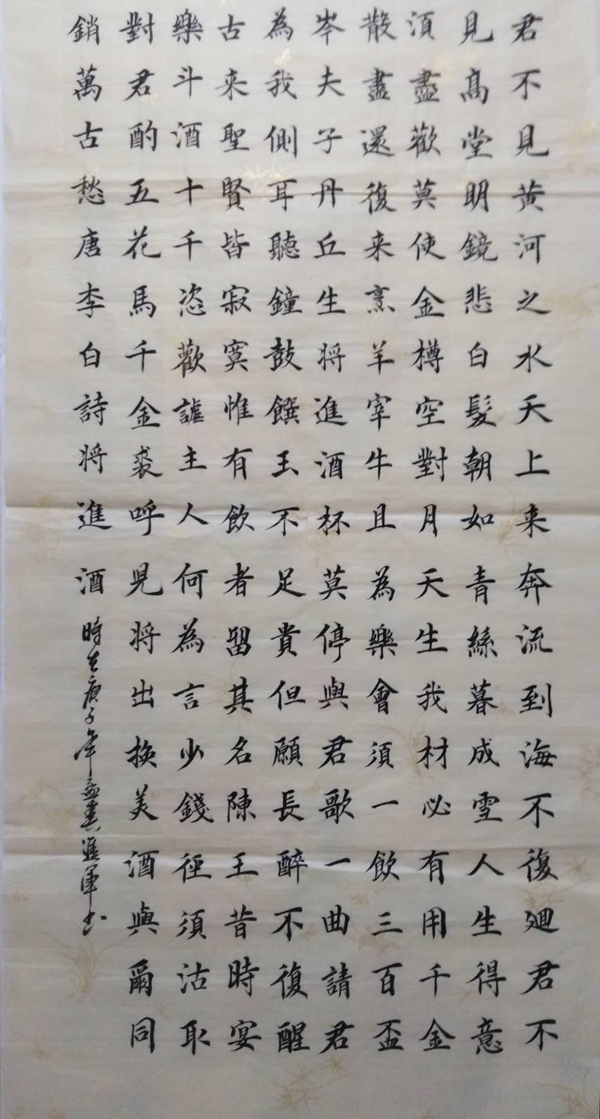 君不見黄河之水天上来奔流到海不復廻君不
見高堂明鏡悲白髮朝如青絲暮成雪人生得意
須盡歡莫使金樽空對月天生我材必有用千金
散盡還復来烹羊宰牛且為樂會須一飲三百盃
岑夫子丹丘生将進酒杯莫停與君歌一曲請君
為我側耳聽鐘鼓饌玉不足貴但願長醉不復醒
古来聖賢皆寂寞惟有飲者留其名陳王昔時宴
樂斗酒十千恣歡謔主人何為言少錢徑須沽取
對君酌五花馬千金裘呼児将出換美酒與爾同
銷萬古愁唐李白詩将進酒時在庚子年